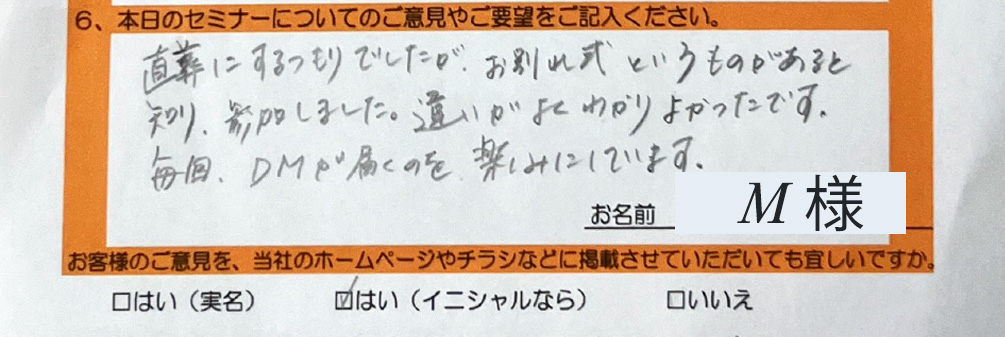 6、本日のセミナーについてのご意見やご要望をご記入ください。
直葬にするつもりでしたが、お別れ式というものがあると
知り、参加しました。違いがよくわかりよかったです。
毎回、DMが届くのを楽しみにしています。
お名前 M 様
お客様のご意見を、当社のホームページやチラシなどに掲載させていただいても宜しいですか。
□はい（実名） ☑はい（イニシャルなら） □いいえ